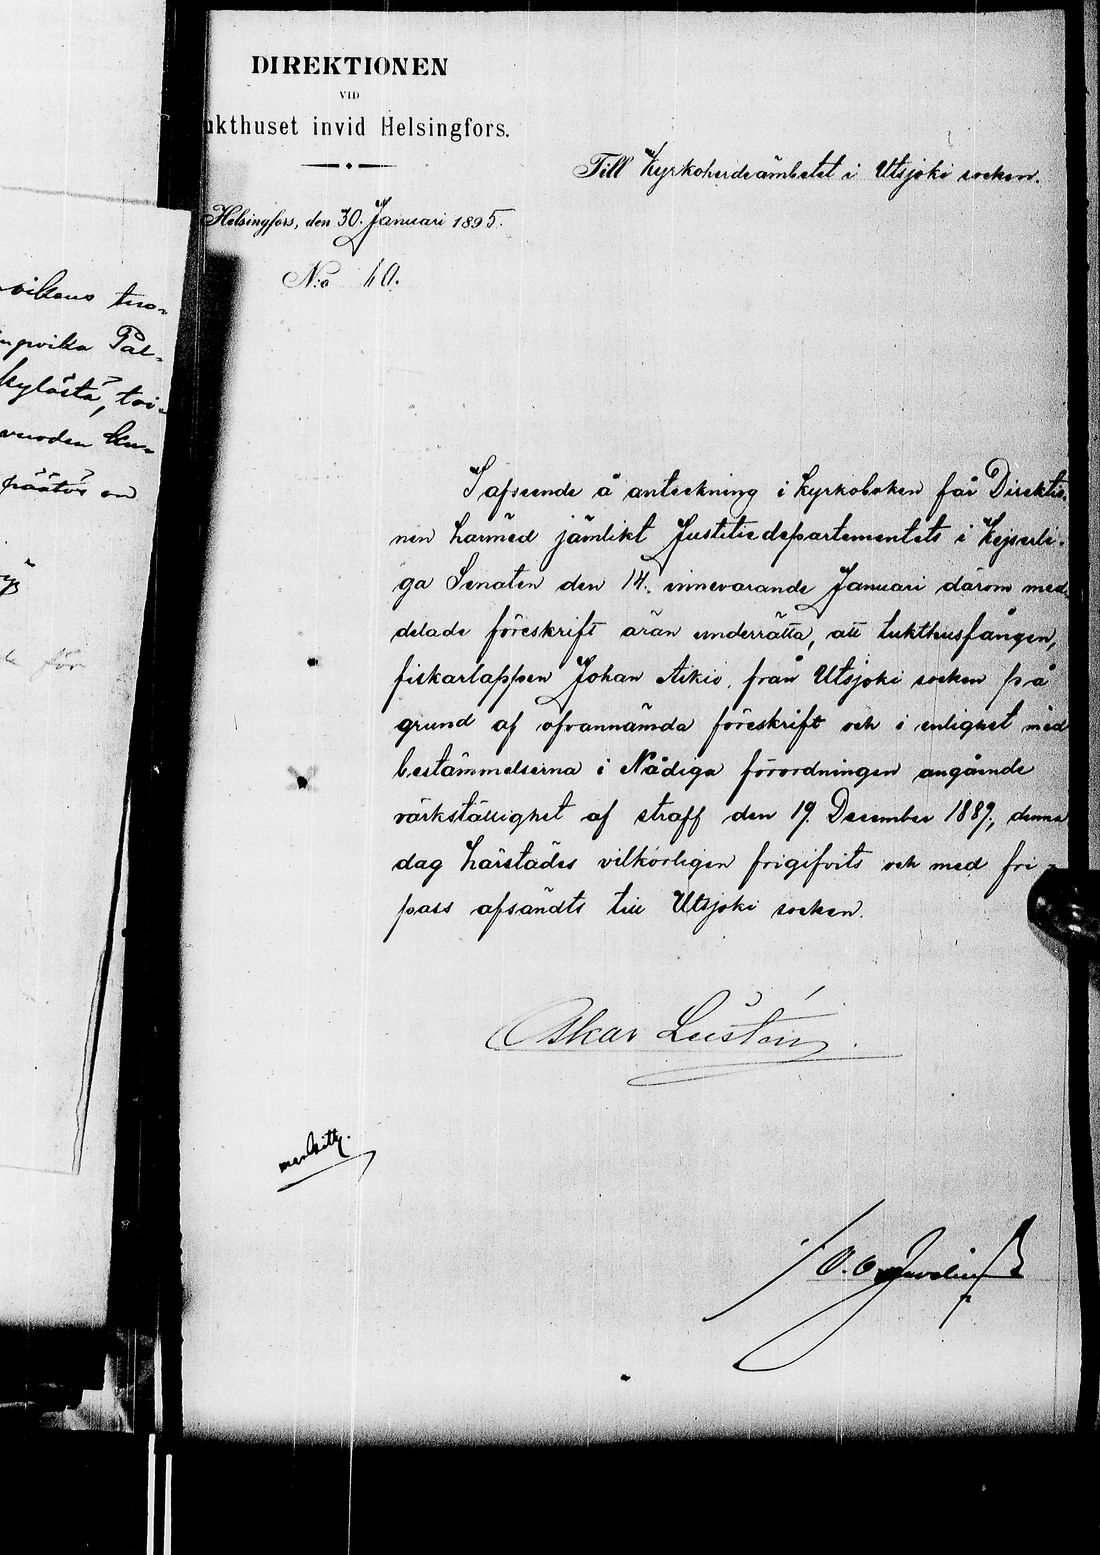 DIREKTIONEN
VID
ukthuset invid Helsingfors.
Till Kyrkoherdeämbetet i Utsjoki socken.
Helsingfors, den 30. Januari 1895.
N:o 40.
I afseende å anteckning i kyrkoboken får Direktio-
nen härmed jämlikt Justitiedepartementets i Kejserli-
ga Senaten den 14. innevarande Januari därom med-
delade föreskrift äran underrätta, att tukthusfången,
fiskarlappen Johan Aikio, från Utsjoki socken på
grund af ofvannämda föreskrift och i enlighet med
bestämmelserna i Nådiga förordningen angående
värkställighet af straff den 19. December 1889, denna
dag härstädes vilkorligen frigifvits och med fri-
pass afsändts till Utsjoki socken.
Oskar Lustén.
merkitty.
vikens tuo-
Pal-
kylästä, toi-
vuoden
päätös on
för